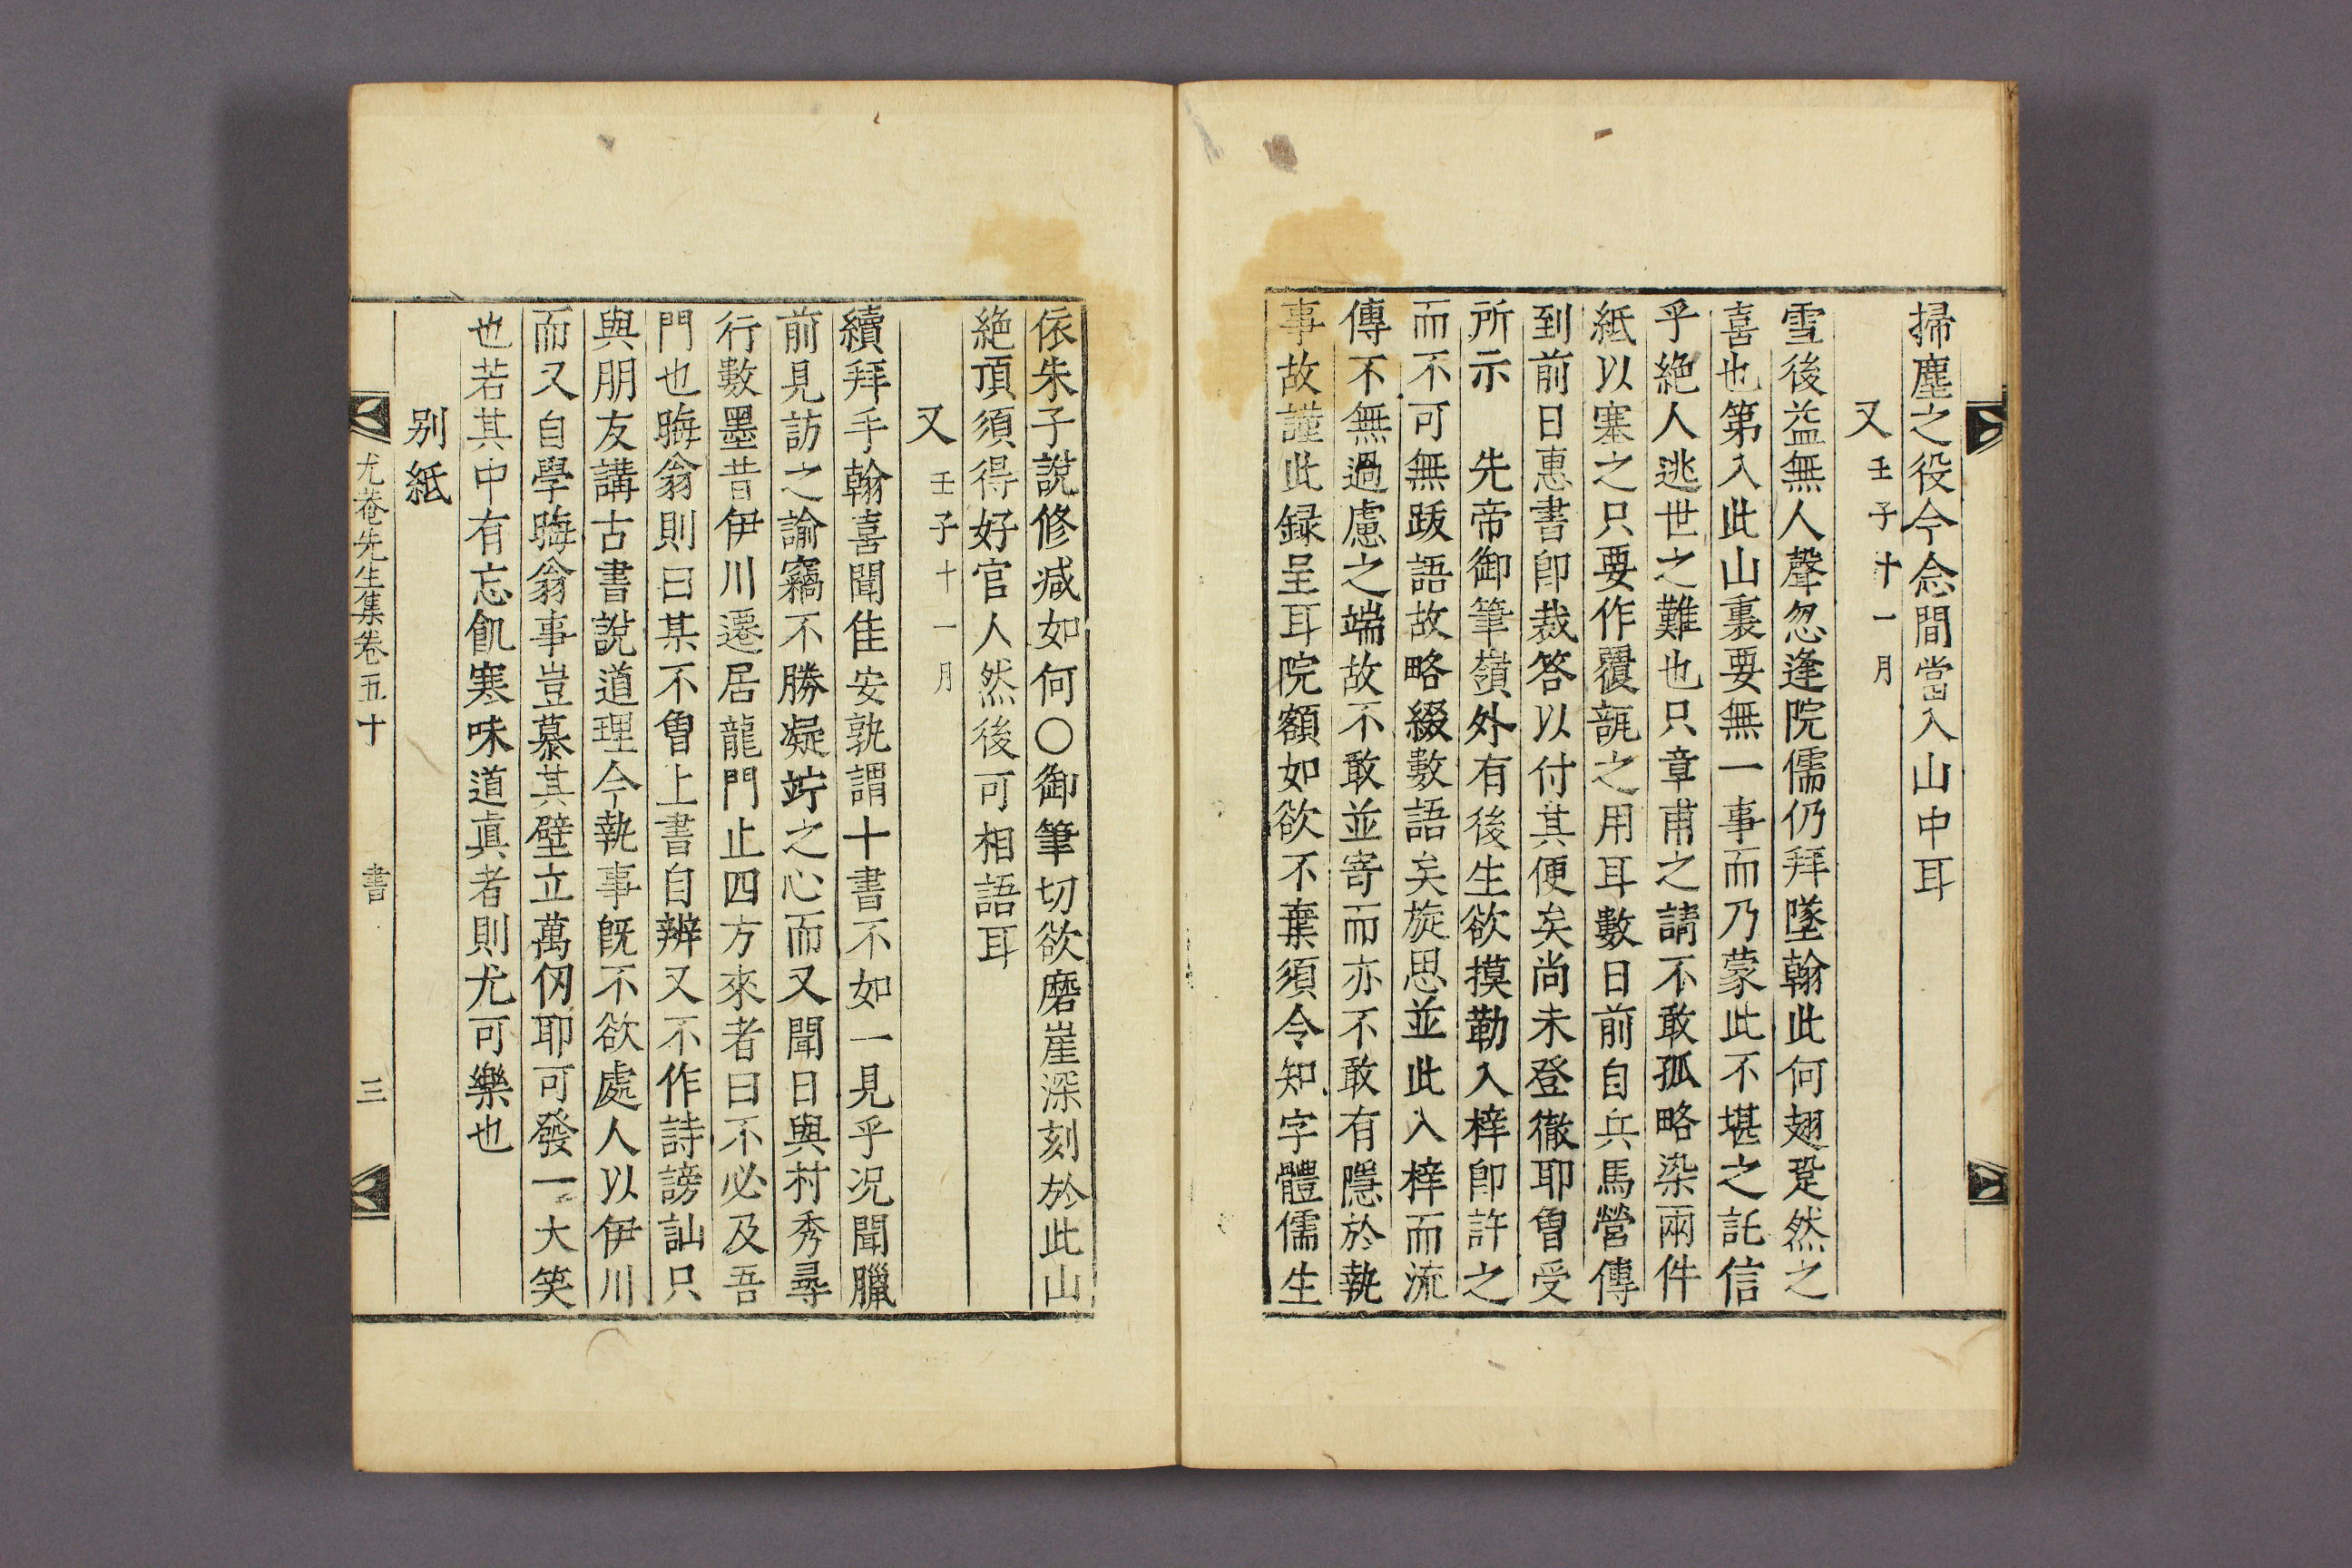 掃塵之役今念間當入山中耳
又 壬子十一月
雪後益無人聲忽逢院儒仍拜墜翰此何翅跫然之
喜也第入此山裏要無一事而乃蒙此不堪之託信
乎絶人逃世之難也只章甫之請不敢孤略染兩件
紙以塞之只要作覆瓿之用耳數日前自兵馬營傳
到前日惠書卽裁答以付其便矣尚未登徹耶曾受
所示 先帝御筆嶺外有後生欲摸勒入梓卽許之
而不可無跋語故略綴數語矣旋思並此入梓而流
傳不無過慮之端故不敢並寄而亦不敢有隱於執
事故謹此録呈耳院額如欲不棄須令知字體儒生
依朱子說修减如何○御筆切欲磨崖深刻於此山
絶頂須得好官人然後可相語耳
又 壬子十一月
續拜手翰喜聞佳安孰謂十書不如一見乎况聞臘
前見訪之諭竊不勝凝竚之心而又聞日與村秀尋
行數墨昔伊川遷居龍門止四方來者曰不必及吾
門也晦翁則曰某不曾上書自辨又不作詩謗訕只
與朋友講古書說道理今執事旣不欲處人以伊川
而又自學晦翁事豈慕其壁立萬仞耶可發一大笑
也若其中有忘飢寒味道眞者則尤可樂也
别紙
尤菴先生集卷五十 書 三